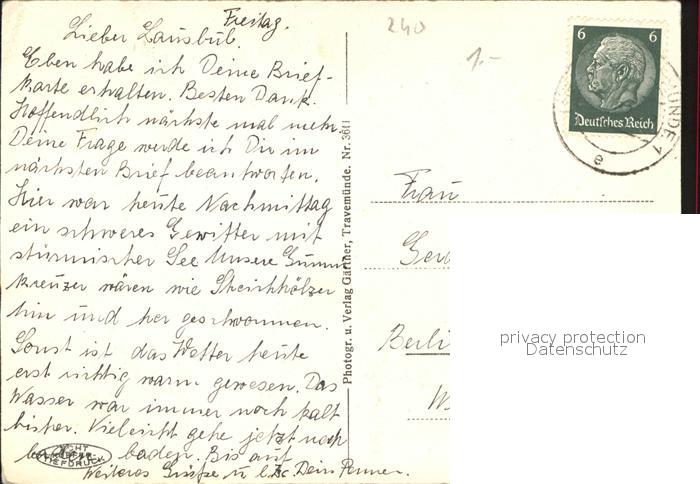 Freitag.
Lieber Lausbub.
Eben habe ich Deine Brief-
karte erhalten. Besten Dank.
Hoffendlich nächste mal mehr.
Deine Frage werde ich Dir im
nächsten Brief beantworten.
Hier war heute Nachmittag
ein schweres Gewitter mit
stürmischer See Unsere Gummi
kreuzer wären wie Streichhölzer
hin und her geschwommen.
Sonst ist das Wetter heute
erst richtig warm gewesen. Das
Wasser war immer noch kalt
bisher. Vielleicht gehe jetzt noch
baden. Bis auf
Weiteres Grüße u Dein
Photogr. u. Verlag Gärtner, Travemünde. Nr. 3611
240
1.-
6 6
Deutsches Reich
MÜNDE 1
e
Frau
Berli
privacy protection
Datenschutz
ECHT
KUPFER-
TIEFDRUCK